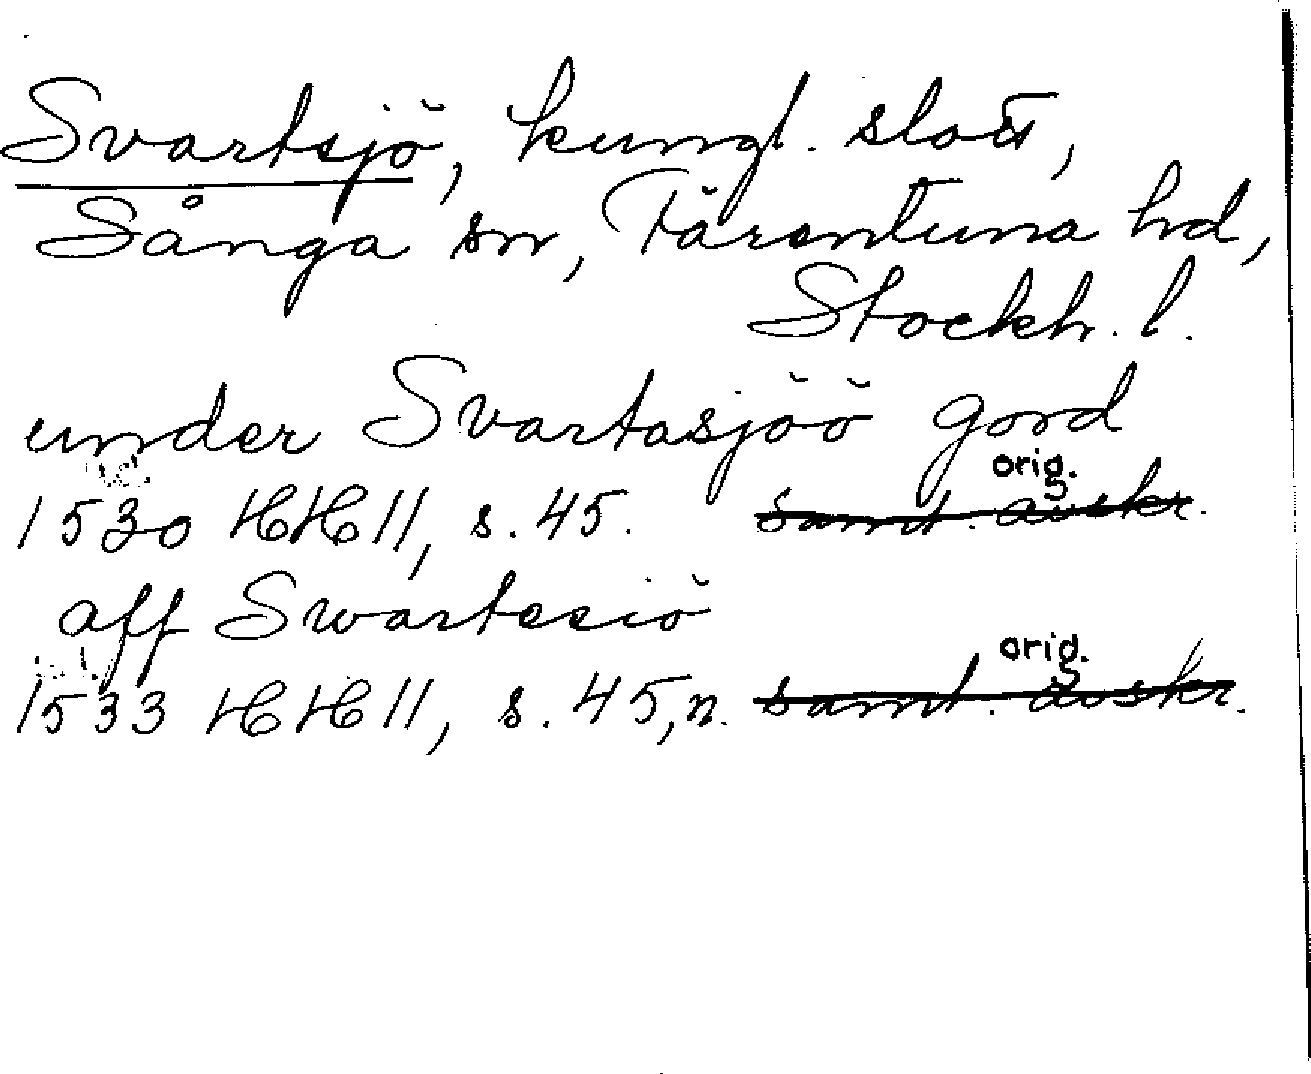 Svartsjö, kungl. slott,
Sånga sn, Färentuna hd,
Stockh. l.
under Svartasjöö gord
orig.
1530 HH 11, s. 45. samt. avskr.
aff Swartesiö
orig.
1533 HH 11, s. 45, n. samt. avskr.